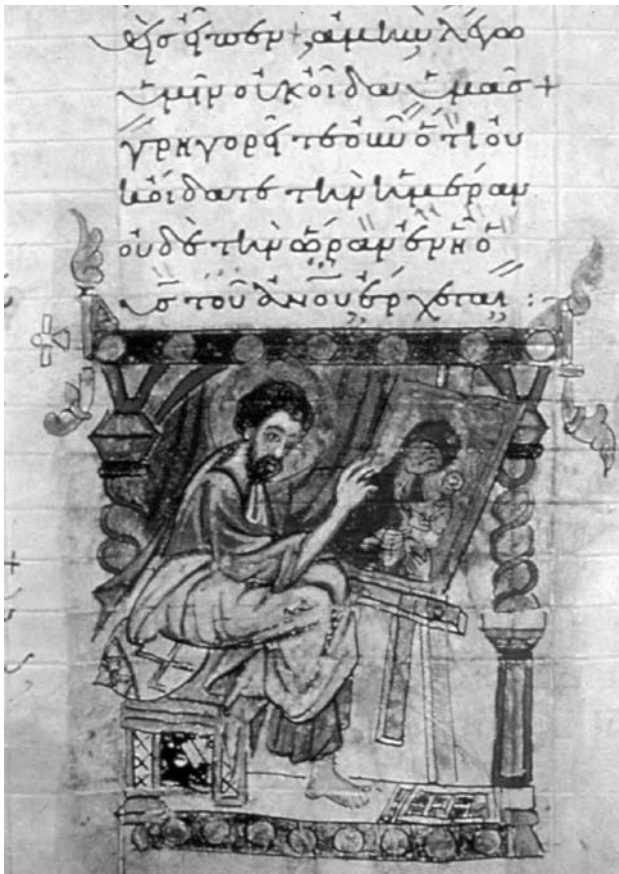 θεὶς εἶπεν+, ἀμὴν λέγω
ὑμῖν οὐκ οἶδα ὑμᾶς+
γρηγορεῖτε οὖν ὅτι οὐ
κ οἴδατε τὴν ἡμέραν
οὐδὲ τὴν ὥραν ἐν ἧ ὁ
υς τοῦ ἀνου ἔρχεται :